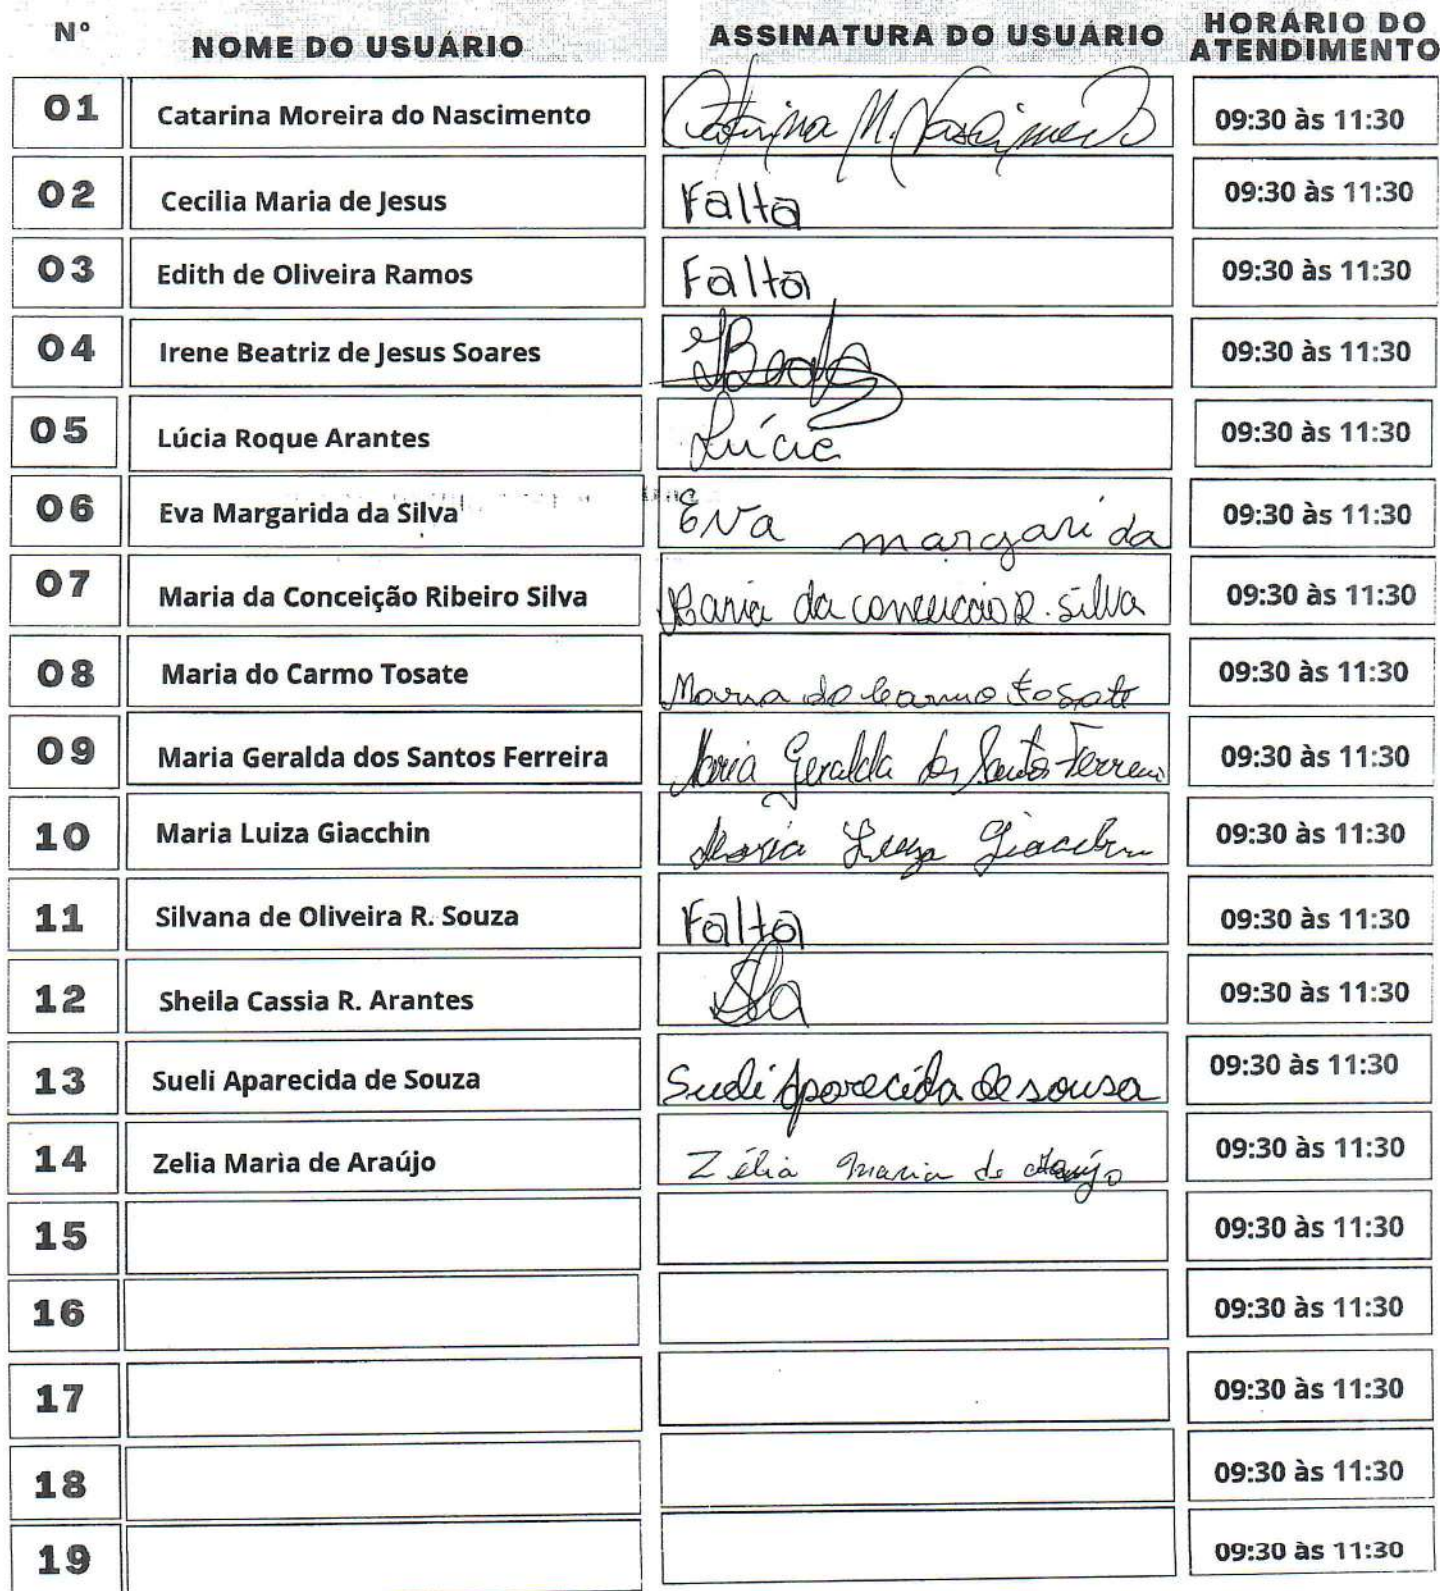 Nº NOME DO USUÁRIO ASSINATURA DO USUÁRIO HORÁRIO DO ATENDIMENTO
01 Catarina Moreira do Nascimento Catarina M. Nascimento 09:30 às 11:30
02 Cecilia Maria de Jesus Falta 09:30 às 11:30
03 Edith de Oliveira Ramos Falta 09:30 às 11:30
04 Irene Beatriz de Jesus Soares 09:30 às 11:30
05 Lúcia Roque Arantes Lúcia 09:30 às 11:30
06 Eva Margarida da Silva Eva margarida 09:30 às 11:30
07 Maria da Conceição Ribeiro Silva Maria da conceicao R. Silva 09:30 às 11:30
08 Maria do Carmo Tosate Maria do Carmo Tosate 09:30 às 11:30
09 Maria Geralda dos Santos Ferreira Maria Geralda dos Santos Ferreira 09:30 às 11:30
10 Maria Luiza Giacchin Maria Luiza Giacchin 09:30 às 11:30
11 Silvana de Oliveira R. Souza Falta 09:30 às 11:30
12 Sheila Cassia R. Arantes 09:30 às 11:30
13 Sueli Aparecida de Souza Sueli Aparecida de sousa 09:30 às 11:30
14 Zelia Maria de Araújo Zélia Maria de Araújo 09:30 às 11:30
15 09:30 às 11:30
16 09:30 às 11:30
17 09:30 às 11:30
18 09:30 às 11:30
19 09:30 às 11:30